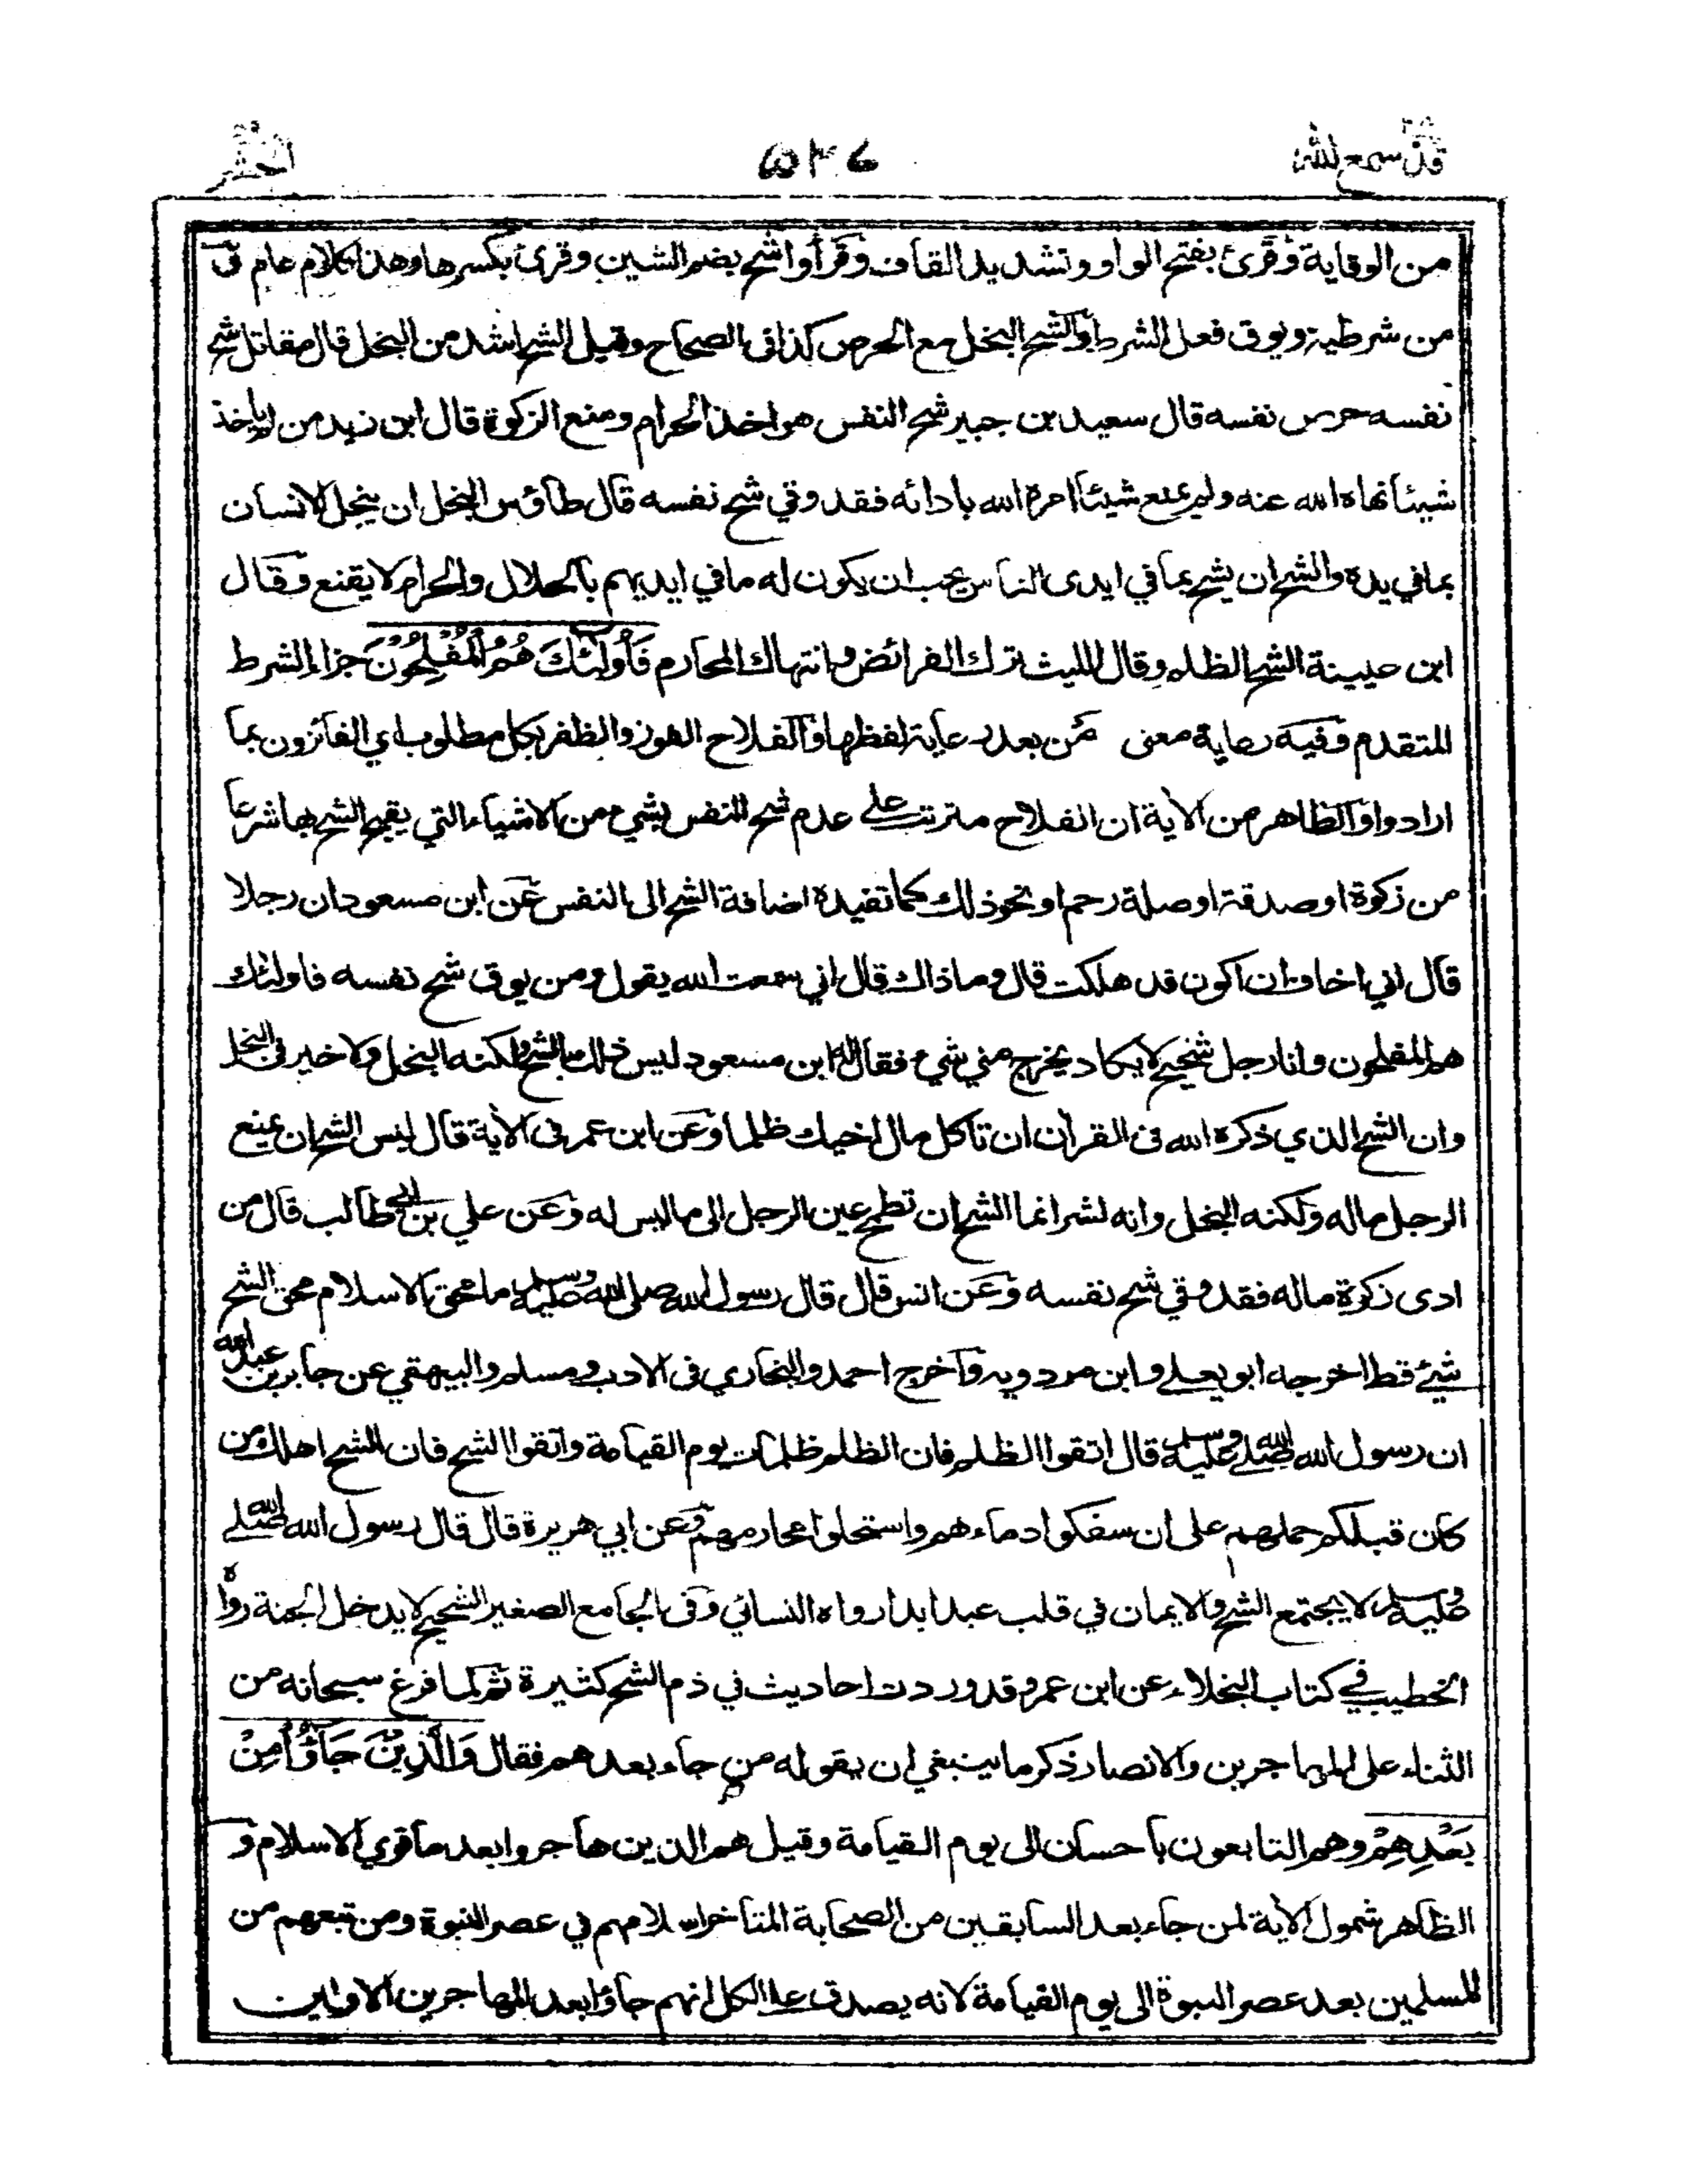 قد سمع الله ٢٨
٥٣٦
الحشر
من الوقاية وقرئ بفتح الواو وتشديد القاف وقرأوا شح بضم الشين وقرئ بكسرها وهذا كلام عام فى
من شرطية ويوق فعل الشرط والشح البخل مع الحرص كذا فى الصحاح وقيل الشح اشد من البخل قال مقاتل شح
نفسه حرص نفسه قال سعيد بن جبير شح النفس هو اخذ الحرام ومنع الزكوة قال ابن زيد من لم ياخذ
شيئا نهاه الله عنه ولم يمنع شيئا امره الله بادائه فقد وقي شح نفسه قال طاؤس البخل ان يبخل الانسان
بما في يده والشح ان يشح بما في ايدى الناس يحب ان يكون له ما في ايديهم بالحلال والحرام لا يقنع وقال
ابن عيينة الشح الظلم وقال الليث ترك الفرائض وانتهاك المحارم فَأُولَئِكَ هُمُ الْمُفْلِحُوْنَ جزاء الشرط
المتقدم وفيه رعاية معنى من بعد رعاية لفظها والفلاح الفوز والظفر بكل مطلوب اي الفائزون بما
ارادوا والظاهر من الآية ان الفلاح مترتب على عدم شح النفس بشيء من الاشياء التي يقبح الشح بها شرعا
من زكوة او صدقة او صلة رحم او نحو ذلك كما تفيده اضافة الشح الى النفس عن ابن مسعود ان رجلا
قال اني اخاف ان اكون قد هلكت قال وما ذاك قال اني سمعت الله يقول ومن يوق شح نفسه فاولئك
هم المفلحون وانا رجل شحيح لا يكاد يخرج مني شيء فقال له ابن مسعود ليس ذلك بالشح ولكنه البخل ولا خير فى البخل
وان الشح الذي ذكره الله فى القرآن ان تاكل مال اخيك ظلما وعن ابن عمر فى الآية قال ليس الشح ان يمنع
الرجل ماله ولكنه البخل وانه لشر انما الشح ان تطمح عين الرجل الى ما ليس له وعن علي بن ابي طالب قال من
ادى زكوة ماله فقد وقي شح نفسه وعن انس قال قال رسول الله صلى الله عليه وسلم ما محق الاسلام محق الشح
شيئ قط اخرجه ابو يعلى وابن مردويه واخرج احمد والبخاري فى الادب ومسلم والبيهقي عن جابر بن عبد الله
ان رسول الله صلى الله عليه وسلم قال اتقوا الظلم فان الظلم ظلمات يوم القيامة واتقوا الشح فان الشح اهلك من
كان قبلكم حملهم على ان سفكوا دماءهم واستحلوا محارمهم وعن ابي هريرة قال قال رسول الله صلى الله
عليه وسلم لا يجتمع الشح والايمان في قلب عبد ابدا رواه النسائي وفى الجامع الصغير الشحيح لا يدخل الجنة رواه
الخطيب في كتاب البخلاء عن ابن عمر وقد وردت احاديث في ذم الشح كثيرة ثم لما فرغ سبحانه من
الثناء على المهاجرين والانصار ذكر ما ينبغي ان يقوله من جاء بعدهم فقال وَالَّذِيْنَ جَاؤُا مِنْ
بَعْدِهِمْ وهم التابعون باحسان الى يوم القيامة وقيل هم الذين هاجروا بعد ما قوي الاسلام و
الظاهر شمول الآية لمن جاء بعد السابقين من الصحابة المتاخر اسلامهم في عصر النبوة ومن تبعهم من
المسلمين بعد عصر النبوة الى يوم القيامة لانه يصدق على الكل انهم جاؤا بعد المهاجرين الاولين